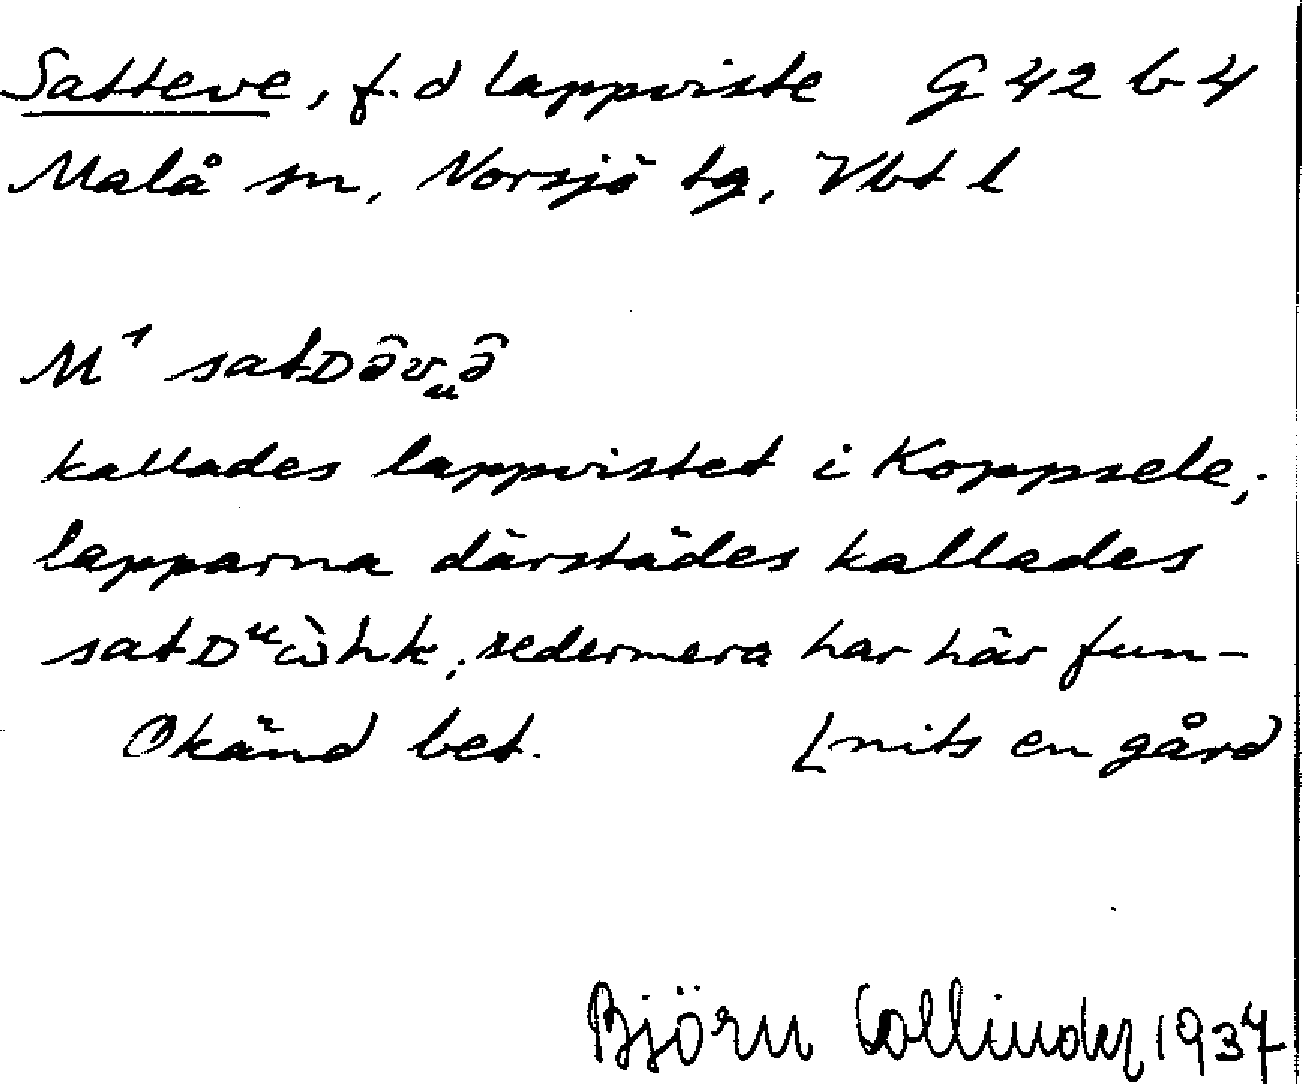 Satteve, f.d lappviste G 42 b 4
Malå sn, Norsjö tg, Vbt l
M¹ satᴅə̑vᵤə̑
kallades lappvistet i Koppsele;
lapparna därstädes kallades
satᴅᵘὼhk; sedermera har här fun-
Okänd bet. [nits en gård
Björn Collinder 1937